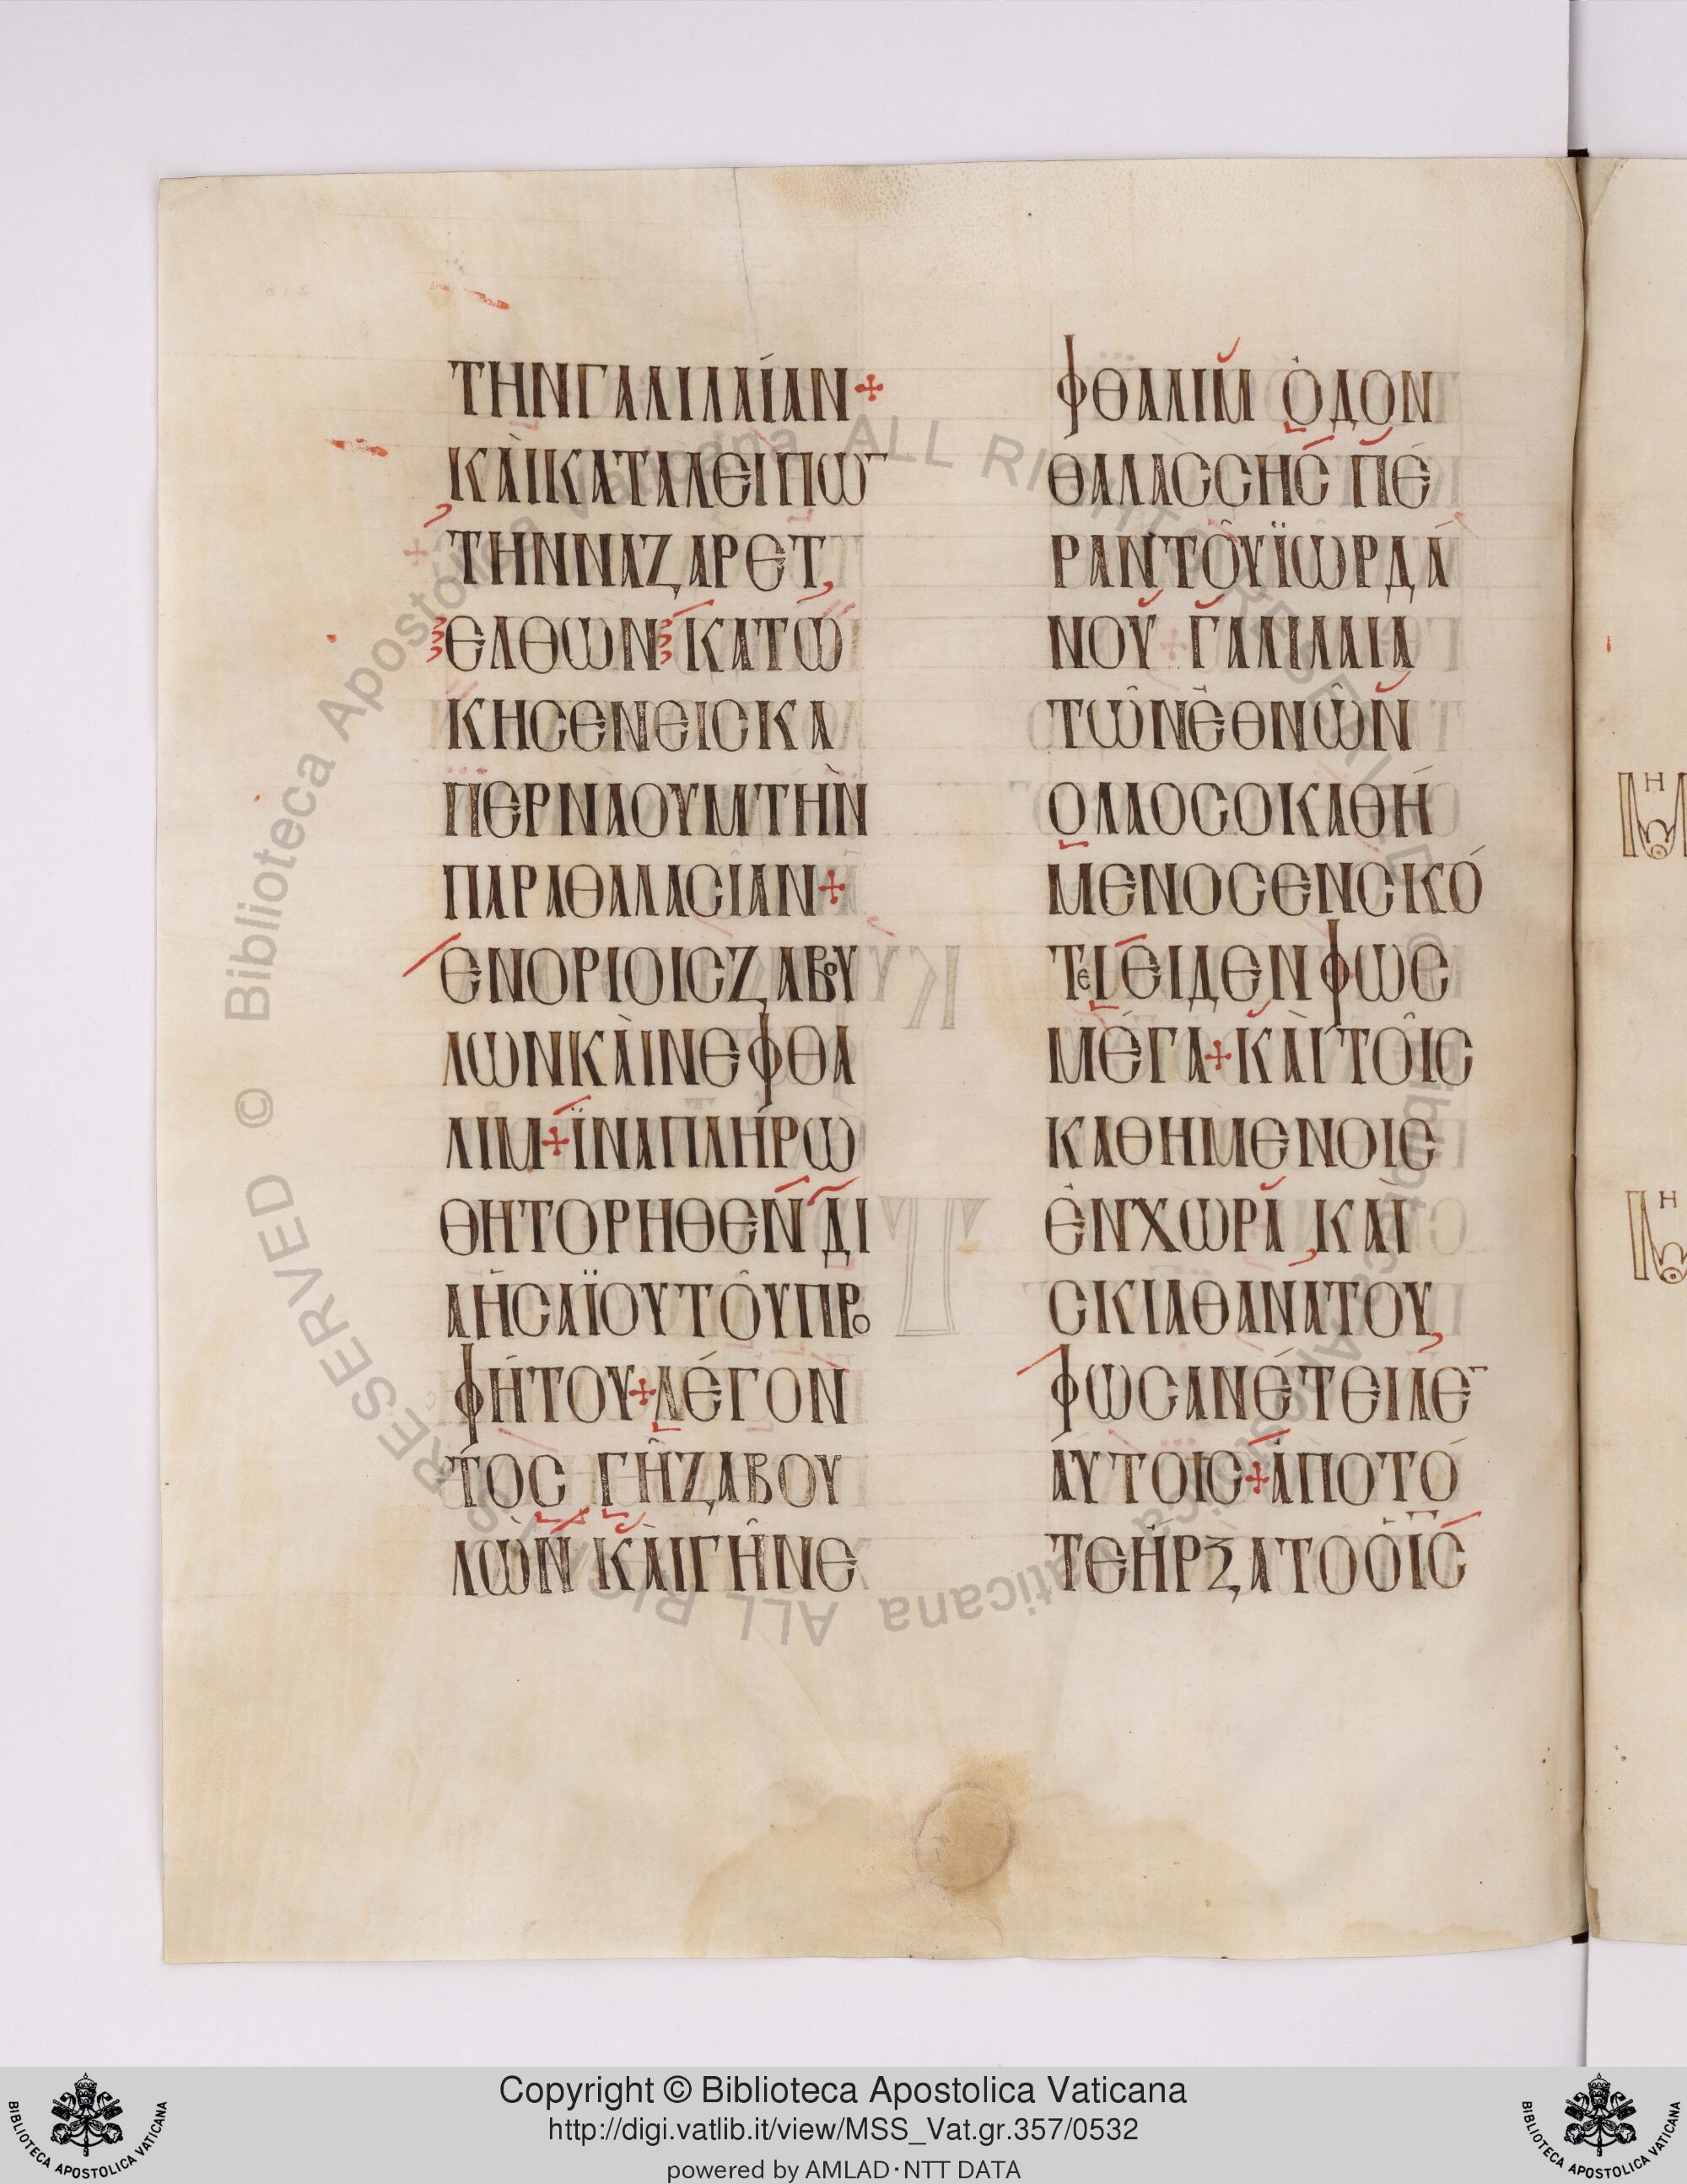 ΤΗΝΓΑΛΙΛΑΊΑΝ+
ΚᾺΙΚΑΤΑΛΕΙΠΩ¯
ΤΗΝΝΑΖΑΡΕΤ,
ΕΛΘΩΝ ΚΑΤΩ
ΚΗϹΕΝΕΙϹΚΑ
ΠΕΡΝΑΟΥΜΤΗΝ
ΠΑΡΑΘΑΛΑϹΙΑΝ+
ΕΝΟΡΙΟΙϹΖΑΒΟΥ
ΛΩΝΚᾺΙΝΕΦΘΑ
ΛΙΜ+ΪΝΑΠΛΗΡΩ
ΘΗΤΟΡΗΘΕΝ ΔΙ
ΑΗϹΑΪΟΥΤΟΥΠΡΟ
ΦΗΤΟΥ+ΛΕΓΟΝ
ΤΟϹ ΓΗΖΑΒΟΥ
ΛΩΝ ΚᾺΙΓΗΝΕ
ΦΘΑΛΙΜ ΟΔΟΝ
ΘΑΛΑϹϹΗϹ ΠΕ
ΡΑΝΤΟΥΪΩΡΔΑ
ΝΟΥ ΓΑΛΙΛΑΙΑ
ΤΩΝΕΘΝΩΝ
ΟΛΑΟϹΟΚΑΘΗ
ΜΕΝΟϹΕΝϹΚΟ
ΤΕΙ ΕΙΔΕΝΦΩϹ
ΜΕΓΑ+ΚᾺΙΤΟΙϹ
ΚΑΘΗΜΕΝΟΙϹ
ΕΝΧΩΡΑ ,ΚΑΙ
ϹΚΙΑΘΑΝΑΤΟΥ,
ΦΩϹΑΝΕΤΕΙΛΕ¯
ΑΥΤΟΙϹ+ΑΠΟΤΟ
ΤΕΗΡΞΑΤΟΟΙϹ
© Biblioteca Apostolica Vaticana ALL RIGHTS RESERVED © Biblioteca Apostolica Vaticana ALL RIGHTS RESERVED
Copyright © Biblioteca Apostolica Vaticana
http://digi.vatlib.it/view/MSS_Vat.gr.357/0532
powered by AMLAD·NTT DATA
BIBLIOTECA APOSTOLICA VATICANA
BIBLIOTECA APOSTOLICA VATICANA